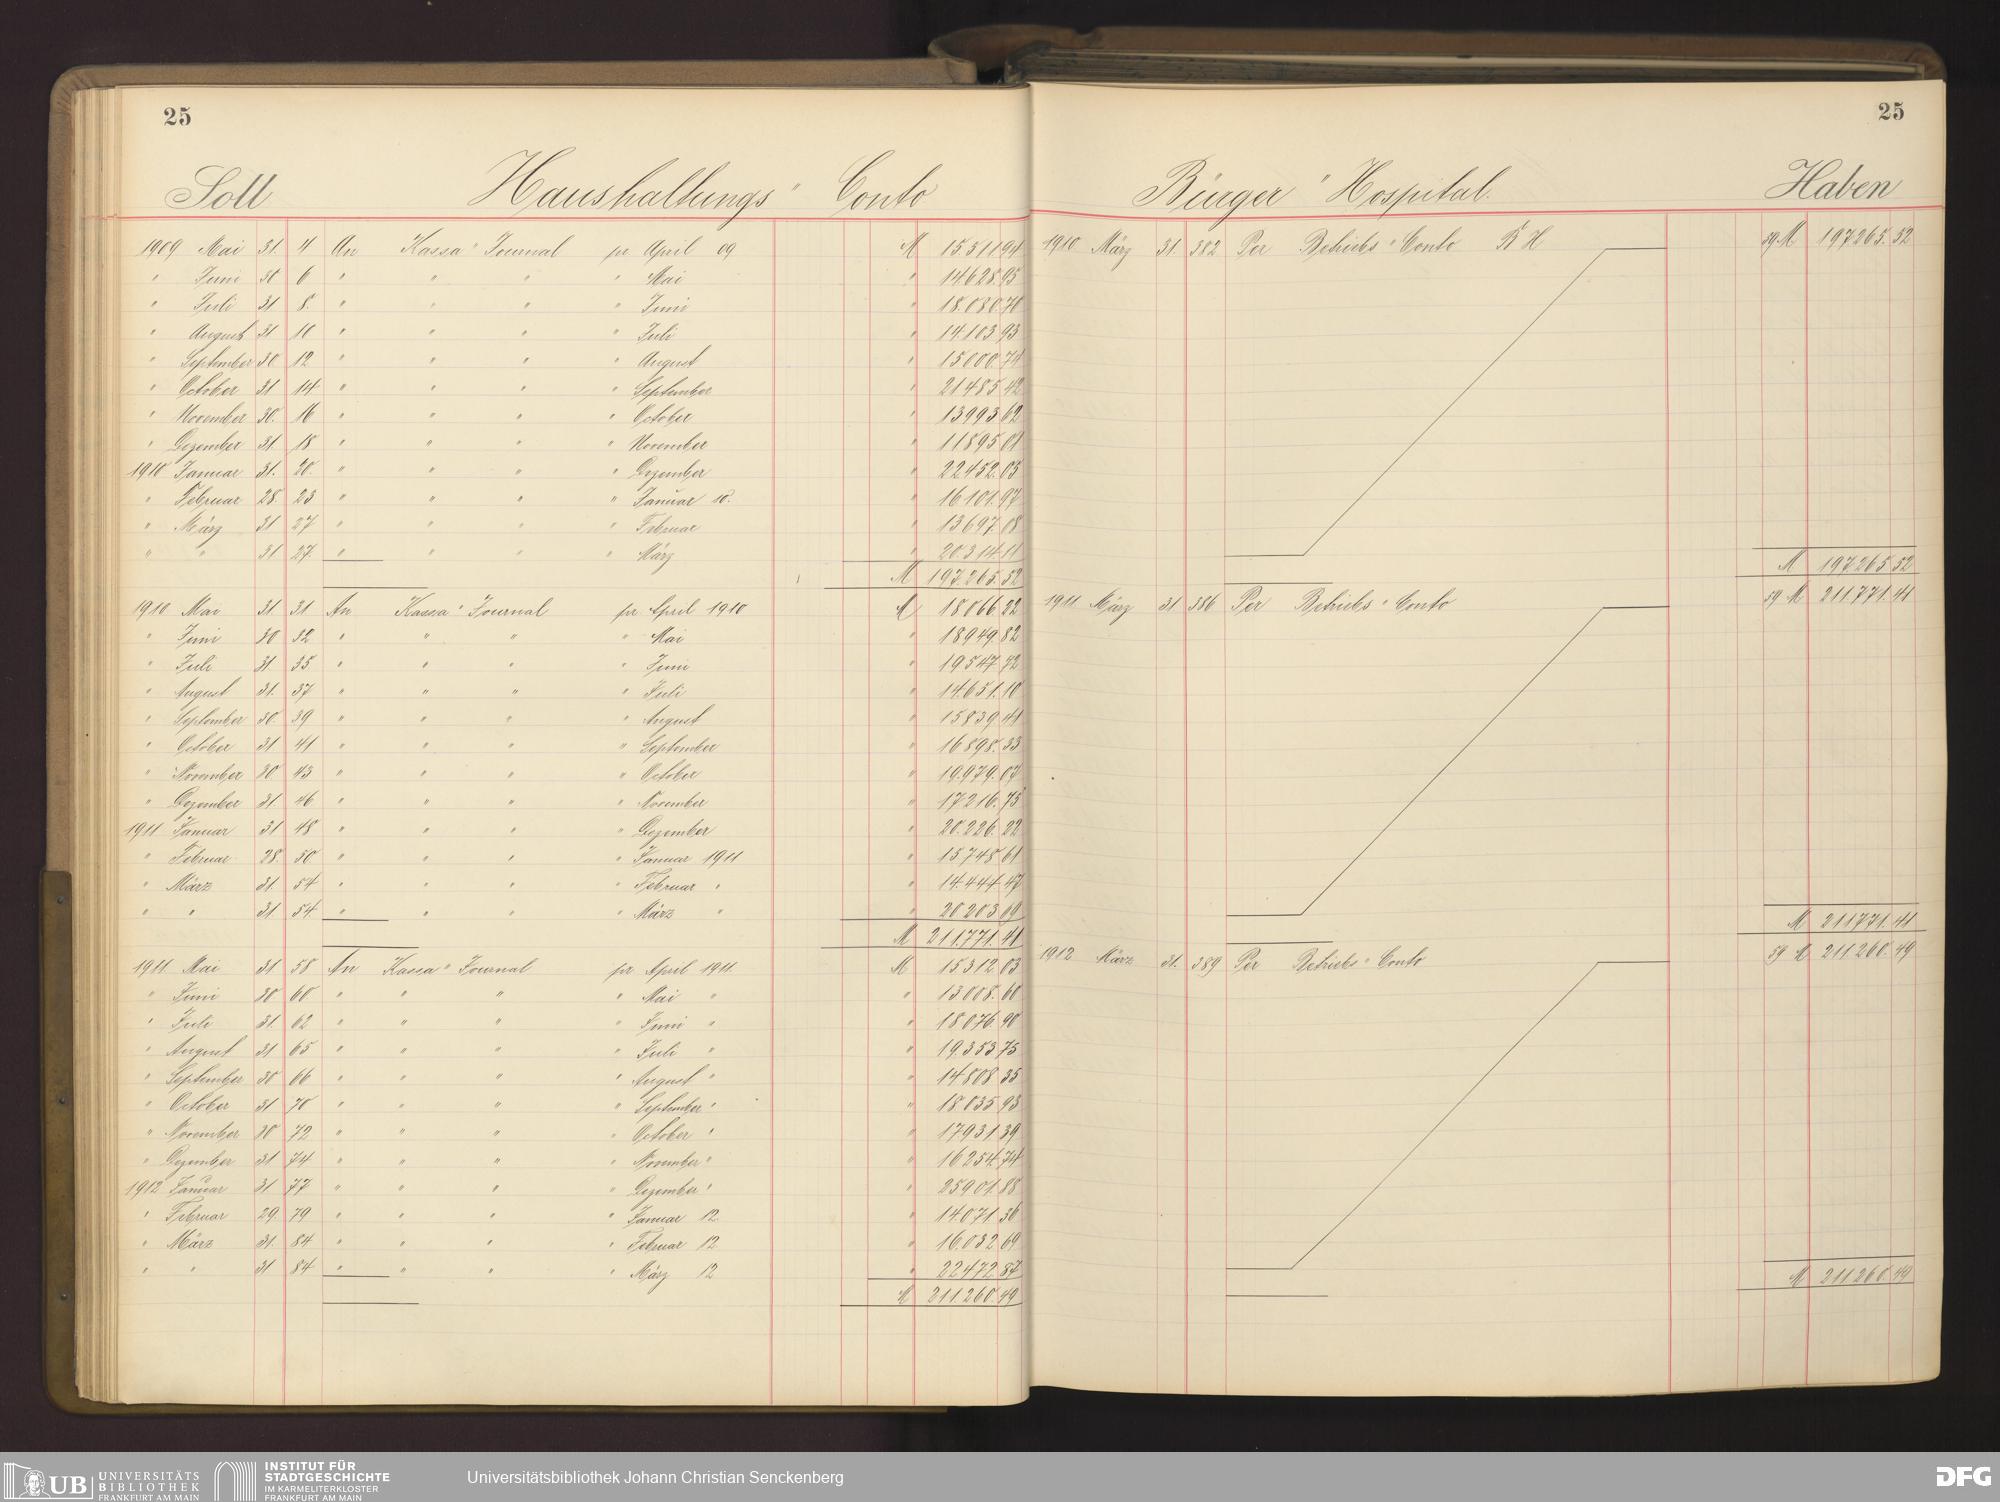 25
Soll Haushaltungs " Conto
1909 Mai 31. 4 An Kassa " Journal pr April 09 M 15311 94
" Juni 30 6 " " " " Mai " 14628.95
" Juli 31 8. " " " " Juni " 18.080.70
" August 31 10 " " " " Juli " 14103 93
" September 30 12 " " " " August " 15000.74
" October 31 14 " " " " September " 21485 42
" November 30. 16 " " " " October " 13993 62
" Dezember 31. 18 " " " " November " 11895 01
1910 Januar 31. 20. " " " " Dezember " 22452.05
" Februar 28. 23 " " " " Januar 10. " 16101.97
" März 31 27 " " " " Februar " 13697.08
" " 31 27. " " " " März " 20.314.11
M 197.265.52
1910 Mai 31. 31 An Kassa " Journal pr April 1910 M 18066 22
" Juni 30 32 " " " " Mai " 18949.82
" Juli 31. 35 " " " " Juni " 19547.72
" August 31. 37 " " " " Juli " 14.651.10
" September 30. 39 " " " " August " 15839.41
" October 31 41 " " " " September " 16898.33
" November 30 43 " " " " October " 19.979.07
" Dezember 31. 46 " " " " November " 17216.75
1911 Januar 31 48 " " " " Dezember " 20.226.22
" Februar 28. 50 " " " " Januar 1911 " 15748 61
" März 31. 54 " " " " Februar " " 14.444.47
" " 31 54 " " " " März " " 20203 69
M 211.771.41
1911 Mai 31 58 An Kassa " Journal pr April 1911. M 15312 03
" Juni 30 60 " " " " Mai " " 13008.60
" Juli 31. 62 " " " " Juni " " 18076.90
" August 31 65 " " " " Juli " " 19.353 75
" September 30 66 " " " " August " " 14808 35
" October 31 70 " " " " September " " 18.035 93
" November 30 72 " " " " October " " 17931.39
" Dezember 31 74 " " " " November " " 16254.74
1912 Januar 31 77 " " " " Dezember " " 25901.88
" Februar 29. 79 " " " " Januar 12. " 14.071.36
" März 31. 84 " " " " Februar 12 " 16.032 69
" " 31 84 " " " " März 12 " 22472 87
M 211260.49
25
Bürger " Hospital. Haben
1910 März 31. 382 Per Betriebs " Conto B H 59 M 197265.52
M 197.265 52
1911 März 31 386 Per Betriebs " Conto 59 M 211.771.41
M 211771.41
1912 März 31. 389 Per Betriebs " Conto 59 M 211.260.49
M 211260.49
UB UNIVERSITÄTS
BIBLIOTHEK
FRANKFURT AM MAIN
INSTITUT FÜR
STADTGESCHICHTE
IM KARMELITERKLOSTER
FRANKFURT AM MAIN
Universitätsbibliothek Johann Christian Senckenberg
DFG